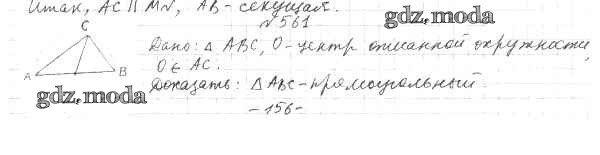 Итак, AC || MN, AB - секущая.
№561
gdz.moda
C
Дано: △ ABC, O - центр описанной окружности,
O ∈ AC.
A B
Доказать: △ ABC - прямоугольный.
gdz.moda
-156-